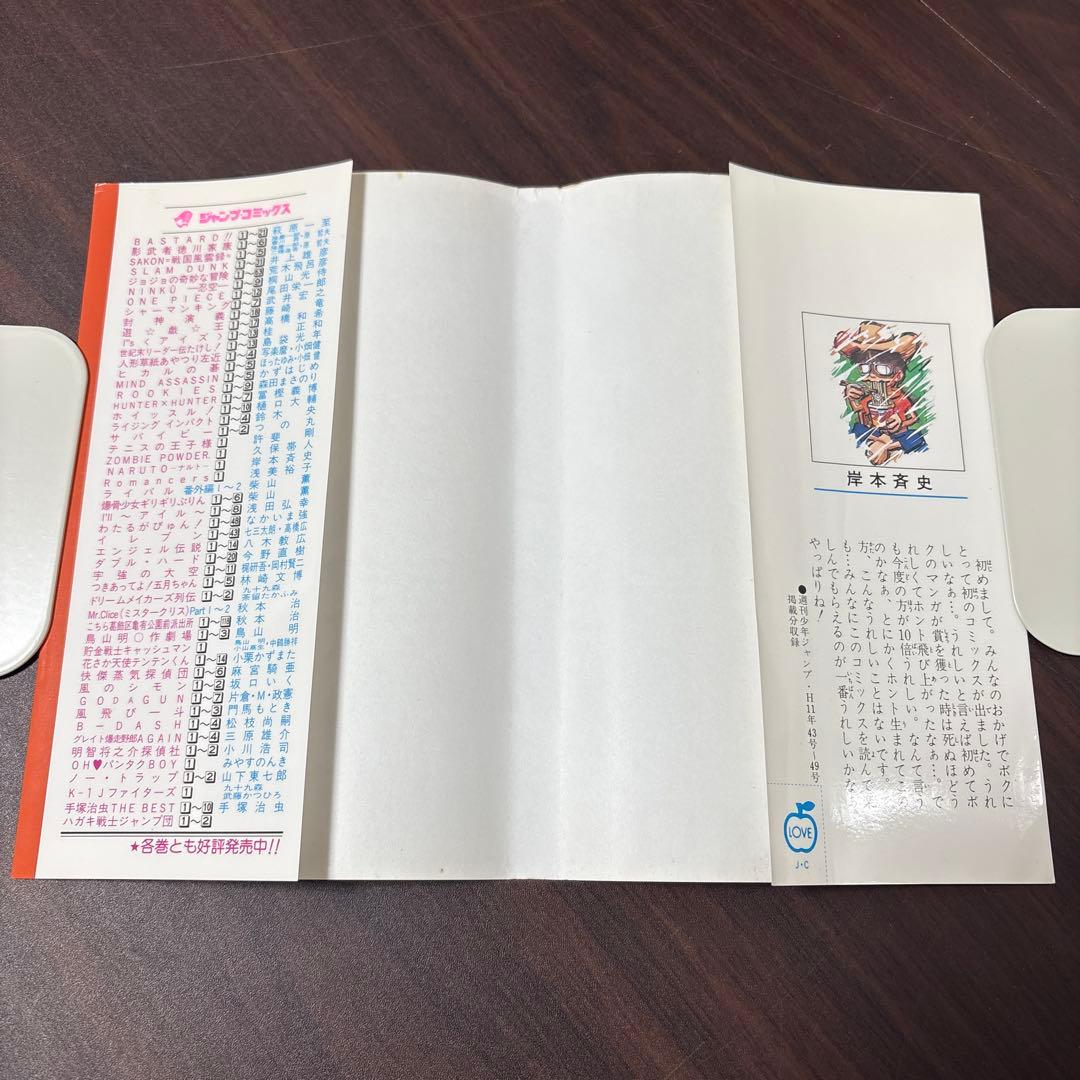 ジャンプコミックス
BASTARD!! 1～21 萩原一至
影武者徳川家康 1～6 原哲夫
SAKON=戦国風雲録= 1～5 原哲夫
SLAM DUNK 1～31 井上雄彦
ジョジョの奇妙な冒険 1～63 荒木飛呂彦
NINKU—忍空— 1～9 桐山光侍
ONE PIECE 1～12 尾田栄一郎
シャーマンキング 1～7 武井宏之
封神演義 1～18 藤崎竜
遊☆戯☆王 1～17 高橋和希
I"s〈アイズ〉 1～13 桂正和
世紀末リーダー伝たけし! 1～13 島袋光年
人形草紙あやつり左近 1～4 写楽麿・小畑健
ヒカルの碁 1～5 ほったゆみ・小畑健
MIND ASSASSIN 1～5 かずはじめ
ROOKIES 1～9 森田まさのり
HUNTER×HUNTER 1～7 冨樫義博
ホイッスル! 1～10 樋口大輔
ライジング インパクト 1～4 鈴木央
サバイビー 1～2 つの丸
テニスの王子様 1 許斐剛
ZOMBIE POWDER. 1 久保帯人
NARUTO—ナルト— 1 岸本斉史
Romancers 1 浅美裕子
ライバル 番外編1～2 柴山薫
爆骨少女ギリギリぷりん 1～6 柴山薫
I'll～アイル～ 1～8 浅田弘幸
わたるがぴゅん! 1～48 なかいま強
イレブン 1～43 七三太朗・高橋広
エンジェル伝説 1～14 八木教広
ダブル・ハード 1～20 今野直樹
宇強の大空 1～11 梶研吾・岡村賢二
つきあってよ!五月ちゃん 1～5 林崎文博
ドリームメイカーズ列伝 1～2 九十九森 茶留たかふみ
Mr.Clice(ミスタークリス) Part1～2 秋本治
こちら葛飾区亀有公園前派出所 1～118 秋本治
鳥山明○作劇場 1～3 鳥山明
貯金戦士キャッシュマン 1 鳥山明・中鶴勝祥 小山高生
花さか天使テンテンくん 1～14 小栗かずまた
快傑蒸気探偵団 1～6 麻宮騎亜
風のシモン 1～2 坂口いく
GOD△GUN 1～7 片倉・M・政憲
風飛び一斗 1～3 門馬もとき
B-DASH 1～4 松枝尚嗣
グレイト爆走野郎AGAIN 1～4 三原雄介
明智将之介探偵社 1～2 小川浩司
OH♥バンタクBOY 1 みやすのんき
ノー・トラップ 1～2 山下東七郎
K-1Jファイターズ 1 九十九森 武藤かつひろ
手塚治虫THE BEST 1～10 手塚治虫
ハガキ戦士ジャンプ団 1～2
★各巻とも好評発売中!!
岸本斉史
初めまして。みんなのおかげでボクに
とって初のコミックスが出ました。うれ
しいなぁ…。うれしいと言えば初めてボ
クのマンガが賞を獲った時は死ぬほどう
れしくてホント飛び上がったなぁ…。で
も今度の方が10倍うれしい。なんて言う
のかなぁ、とにかくホント生まれてこの
方、こんなうれしいことはないです。で
も…みんなにこのコミックスを読んで楽
しんでもらえるのが一番うれしいかな、
やっぱりね!
●週刊少年ジャンプ・H11年43号～49号
掲載分収録
LOVE
J・C